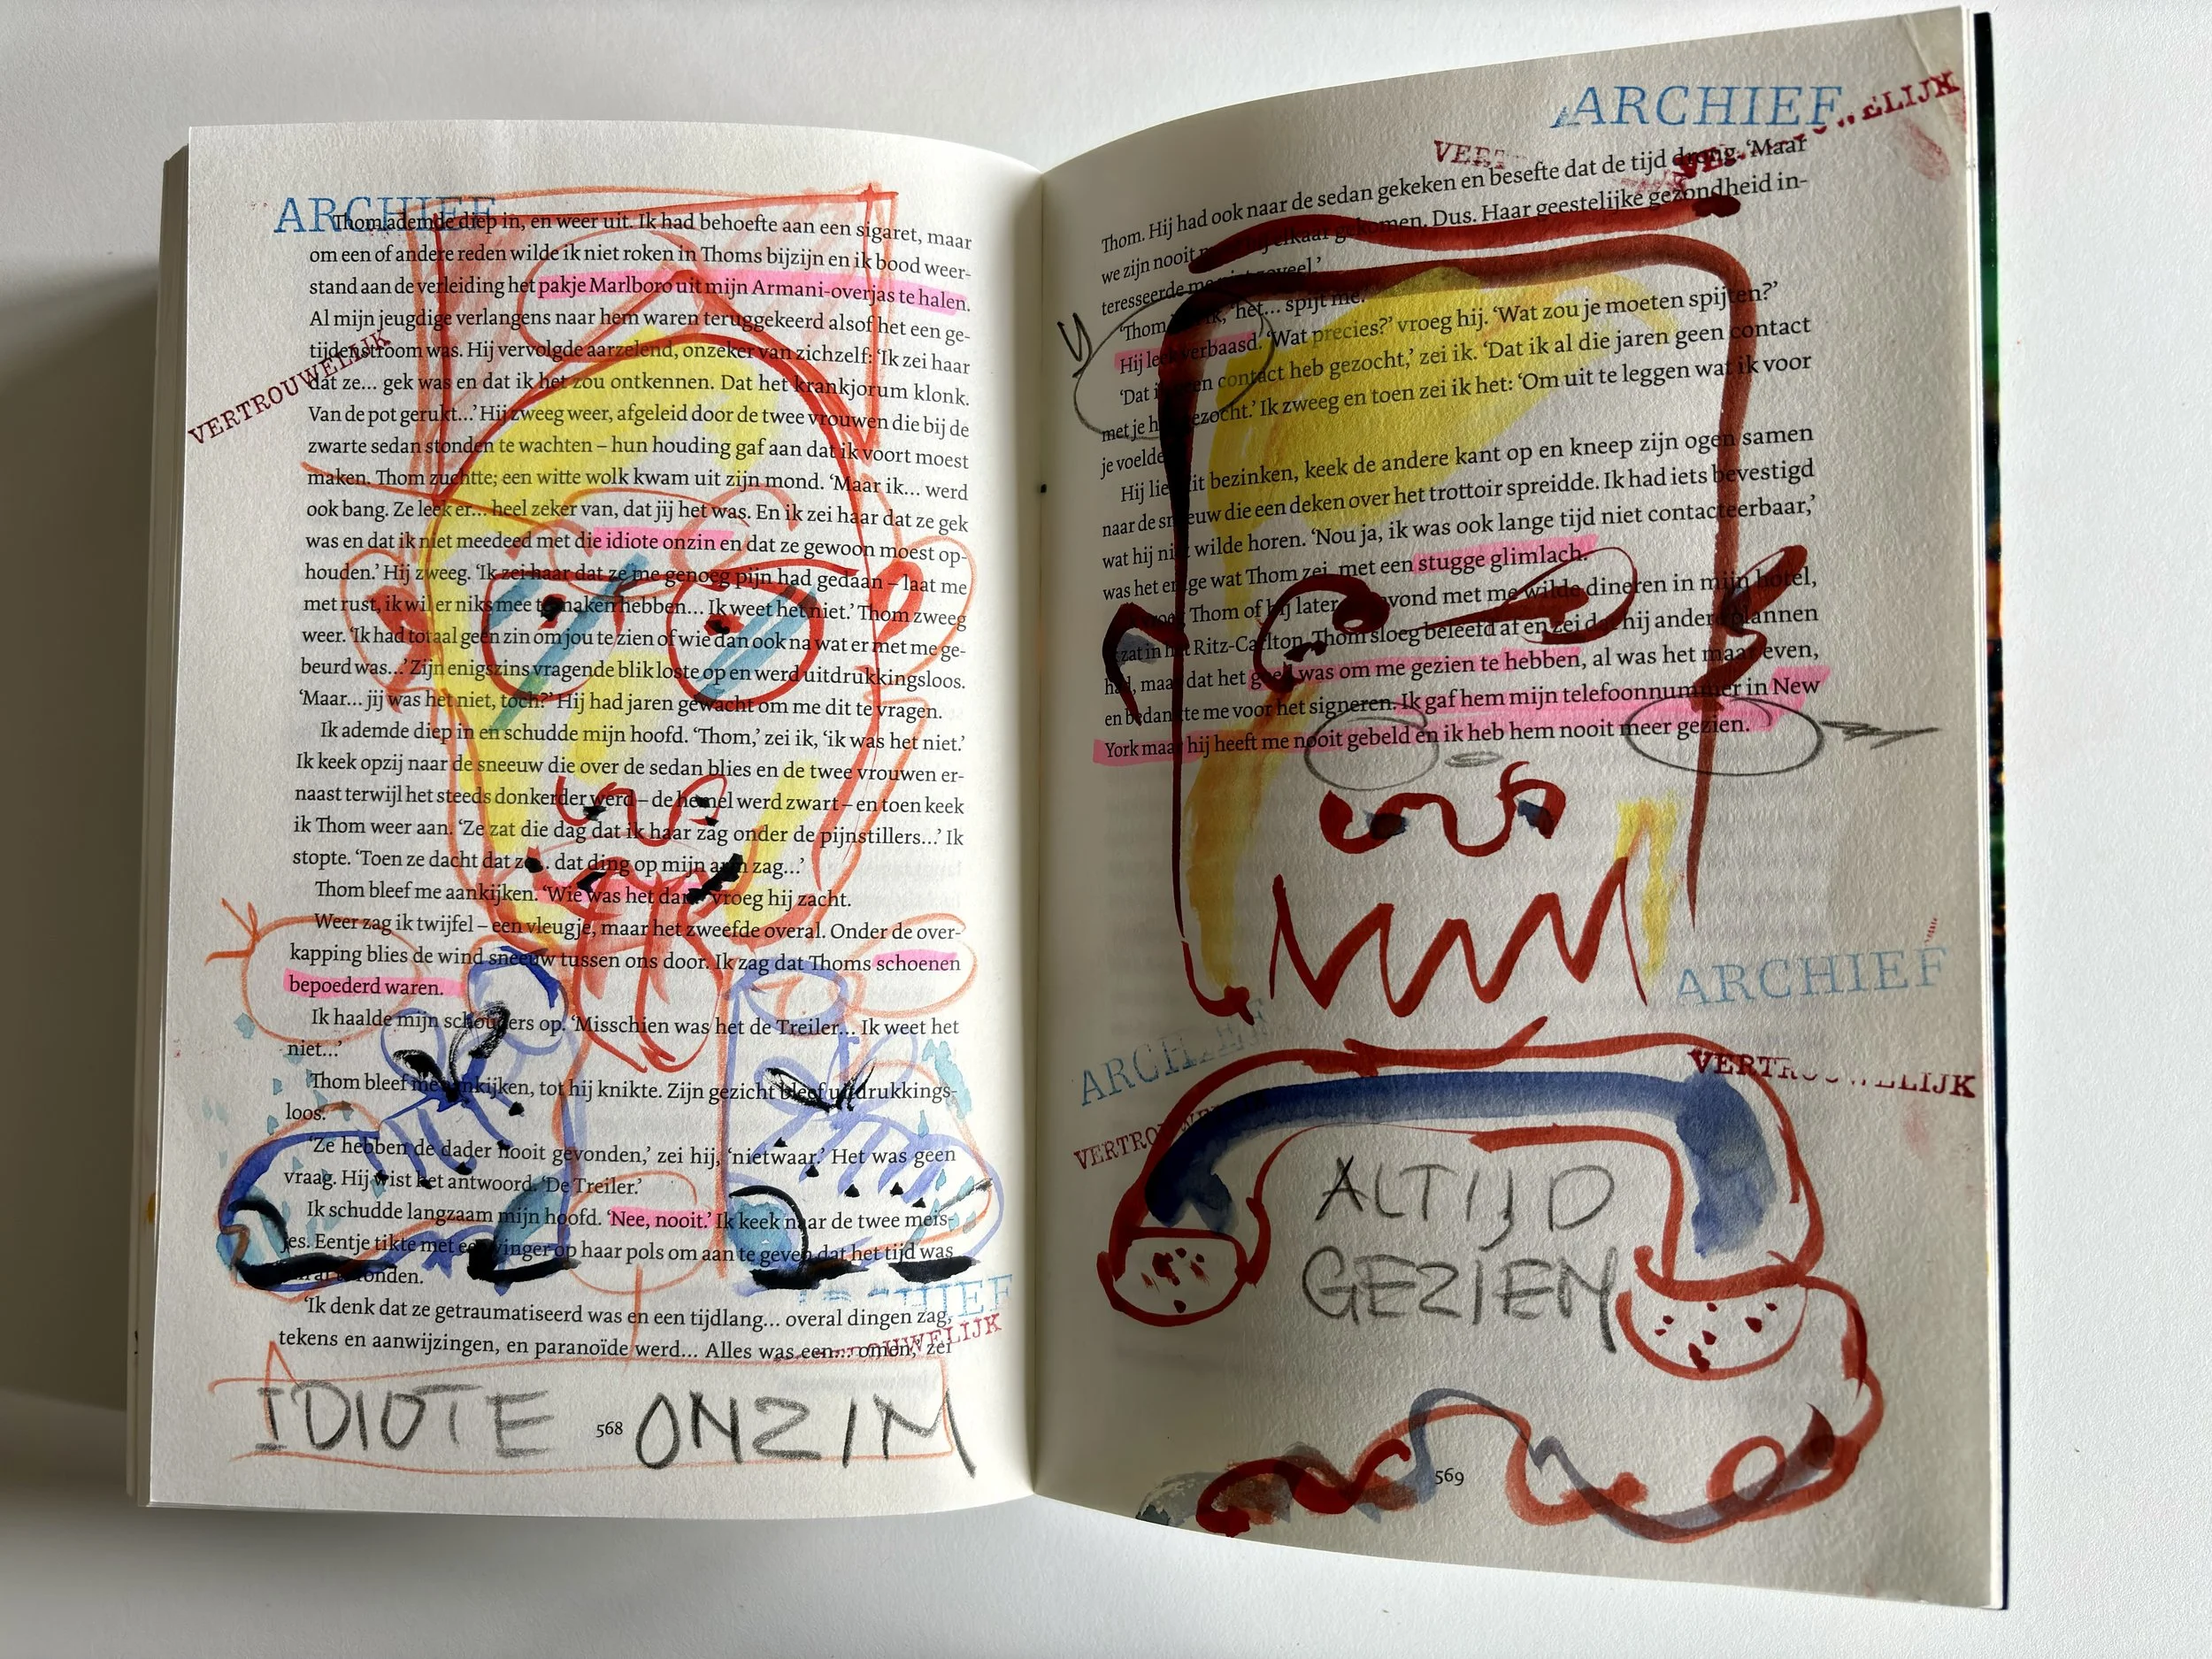 ARCHIEF
Thom ademde diep in, en weer uit. Ik had behoefte aan een sigaret, maar
om een of andere reden wilde ik niet roken in Thoms bijzijn en ik bood weer-
stand aan de verleiding het pakje Marlboro uit mijn Armani-overjas te halen.
Al mijn jeugdige verlangens naar hem waren teruggekeerd alsof het een ge-
tijdenstroom was. Hij vervolgde aarzelend, onzeker van zichzelf: ‘Ik zei haar
VERTROUWELIJK
dat ze… gek was en dat ik het zou ontkennen. Dat het krankjorum klonk.
Van de pot gerukt…’ Hij zweeg weer, afgeleid door de twee vrouwen die bij de
zwarte sedan stonden te wachten – hun houding gaf aan dat ik voort moest
maken. Thom zuchtte; een witte wolk kwam uit zijn mond. ‘Maar ik… werd
ook bang. Ze leek er… heel zeker van, dat jij het was. En ik zei haar dat ze gek
was en dat ik niet meedeed met die idiote onzin en dat ze gewoon moest op-
houden.’ Hij zweeg. ‘Ik zei haar dat ze me genoeg pijn had gedaan – laat me
met rust, ik wil er niks mee te maken hebben… Ik weet het niet.’ Thom zweeg
weer. ‘Ik had totaal geen zin om jou te zien of wie dan ook na wat er met me ge-
beurd was…’ Zijn enigszins vragende blik loste op en werd uitdrukkingsloos.
‘Maar… jij was het niet, toch?’ Hij had jaren gewacht om me dit te vragen.
Ik ademde diep in en schudde mijn hoofd. ‘Thom,’ zei ik, ‘ik was het niet.’
Ik keek opzij naar de sneeuw die over de sedan blies en de twee vrouwen er-
naast terwijl het steeds donkerder werd – de hemel werd zwart – en toen keek
ik Thom weer aan. ‘Ze zat die dag dat ik haar zag onder de pijnstillers…’ Ik
stopte. ‘Toen ze dacht dat ze… dat ding op mijn arm zag…’
Thom bleef me aankijken. ‘Wie was het dan?’ vroeg hij zacht.
Weer zag ik twijfel – een vleugje, maar het zweefde overal. Onder de over-
kapping blies de wind sneeuw tussen ons door. Ik zag dat Thoms schoenen
bepoederd waren.
Ik haalde mijn schouders op. ‘Misschien was het de Treiler… Ik weet het
niet…’
Thom bleef me aankijken, tot hij knikte. Zijn gezicht bleef uitdrukkings-
loos.
‘Ze hebben de dader nooit gevonden,’ zei hij, ‘nietwaar.’ Het was geen
vraag. Hij wist het antwoord. ‘De Treiler.’
Ik schudde langzaam mijn hoofd. ‘Nee, nooit.’ Ik keek naar de twee meis-
jes. Eentje tikte met een vinger op haar pols om aan te geven dat het tijd was
‘Ik denk dat ze getraumatiseerd was en een tijdlang… overal dingen zag,
tekens en aanwijzingen, en paranoïde werd… Alles was een… omen,’ zei
IDIOTE ONZIN
568
ARCHIEF
Thom. Hij had ook naar de sedan gekeken en besefte dat de tijd drong. ‘Maar
we zijn nooit elkaar gekomen. Dus. Haar geestelijke gezondheid in-
teresseerde me
‘Thom ‘het… spijt me.’
Hij leek verbaasd. ‘Wat precies?’ vroeg hij. ‘Wat zou je moeten spijten?’
‘Dat ik geen contact heb gezocht,’ zei ik. ‘Dat ik al die jaren geen contact
met je heb gezocht.’ Ik zweeg en toen zei ik het: ‘Om uit te leggen wat ik voor
je voelde
Hij liet dit bezinken, keek de andere kant op en kneep zijn ogen samen
naar de sneeuw die een deken over het trottoir spreidde. Ik had iets bevestigd
wat hij niet wilde horen. ‘Nou ja, ik was ook lange tijd niet contacteerbaar,’
was het enige wat Thom zei, met een stugge glimlach.
Thom of hij later avond met me wilde dineren in mijn hotel,
zat in het Ritz-Carlton. Thom sloeg beleefd af en zei dat hij andere plannen
had, maar dat het goed was om me gezien te hebben, al was het maar even,
en bedankte me voor het signeren. Ik gaf hem mijn telefoonnummer in New
York maar hij heeft me nooit gebeld en ik heb hem nooit meer gezien.
ARCHIEF
ARCHIEF
VERTROUWELIJK
ALTIJD
GEZIEN
569